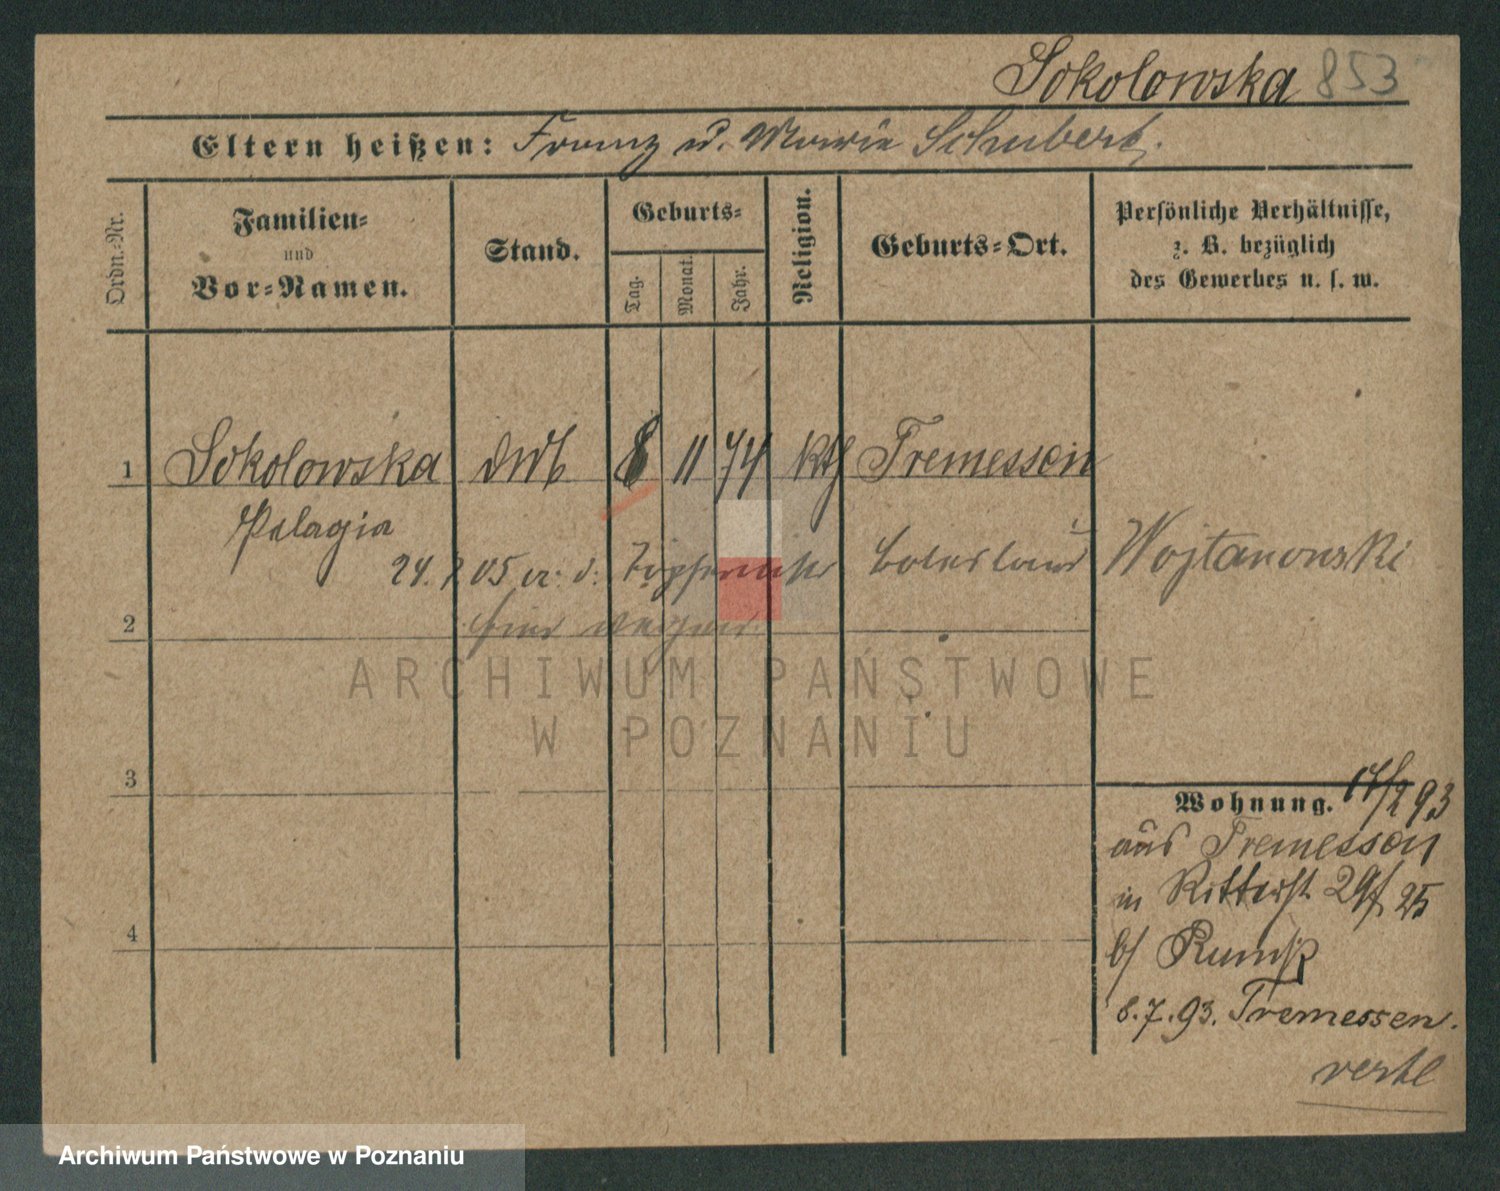 Sokolowska 853
Eltern heißen: Franz u. Marie Schubert.
Ordn.-Nr.
Familien-
und
Vor-Namen.
Stand.
Geburts-
Tag.
Monat.
Jahr.
Religion.
Geburts-Ort.
Persönliche Verhältnisse,
z. B. bezüglich
des Gewerbes u. s. w.
1 Sokolowska 8 11 74 kth Tremessen
Pelagia
05 Wojtanowski
2
3
4
Wohnung. 93
aus Tremessen
in Ritterst. 29 25
b/ Rumsz
8.7.93. Tremessen.
ARCHIWUM PAŃSTWOWE
W POZNANIU
Archiwum Państwowe w Poznaniu